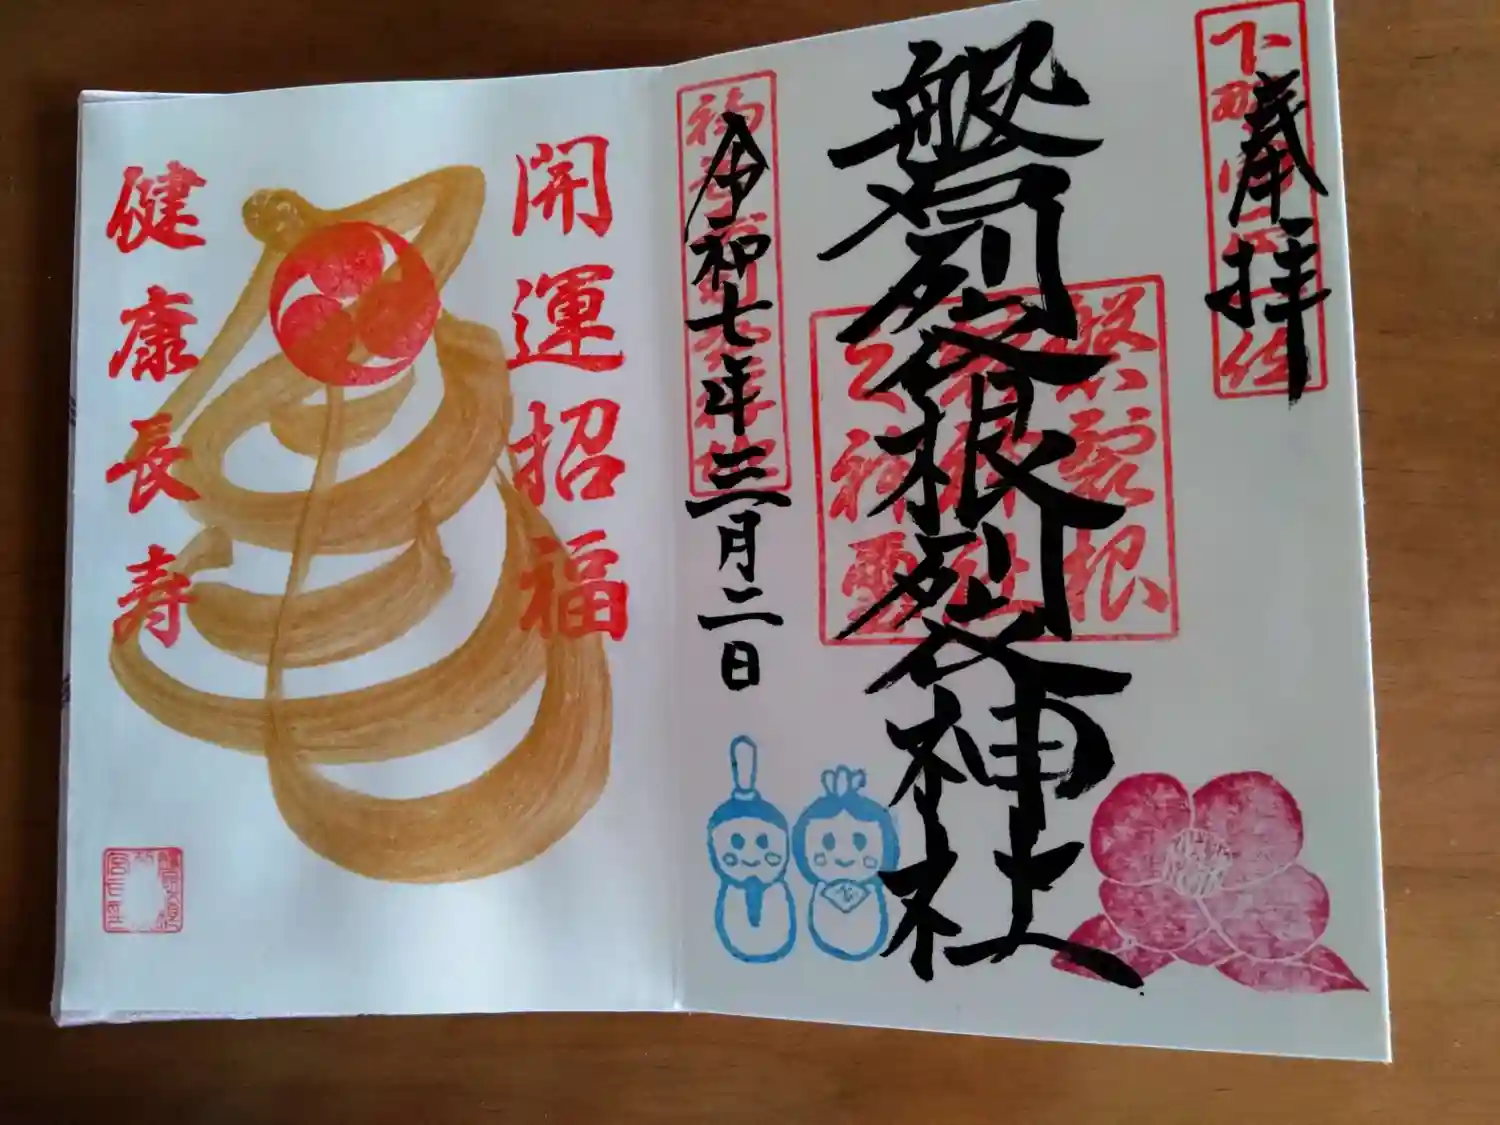 奉拝
磐裂根裂神社
磐裂根
裂神社
之神璽
令和七年三月二日
開運招福
健康長寿